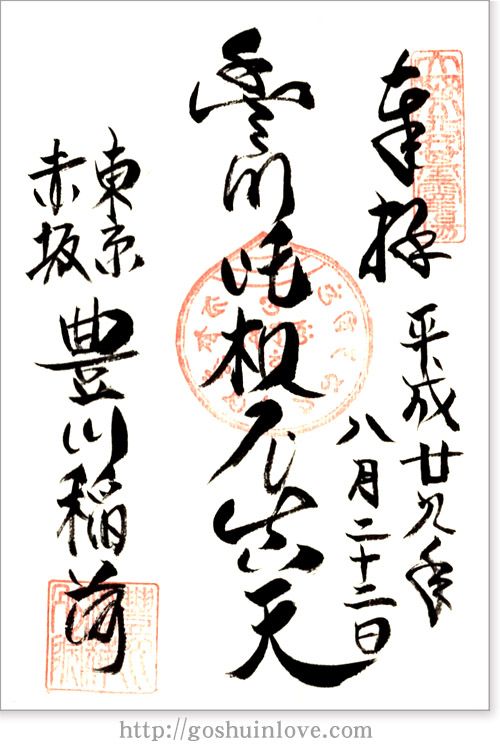 奉拝
平成廿九年
八月二十二日
豊川吒枳尼真天
東京
赤坂
豊川稲荷
http://goshuinlove.com